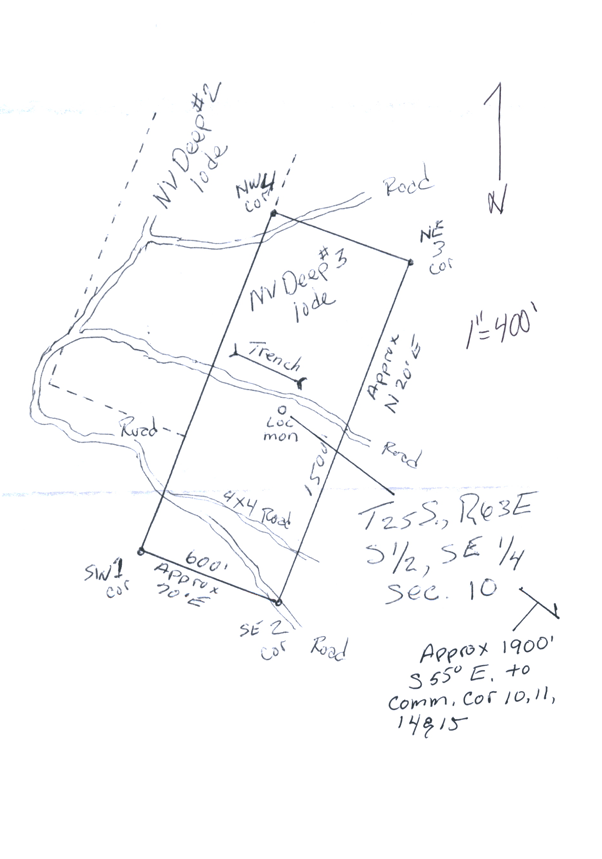 NV Deep #2
lode
NW 4
cor
Road
N
NE
3
cor
NV Deep #3
lode
1"=400'
Trench
Approx
N 20° E
LOC
mon
Road
Road
1500'
4X4 Road
T25S., R63E
S 1/2, SE 1/4
Sec. 10
600'
Approx
70° E
SW 1
cor
SE 2
cor
Road
Approx 1900'
S 55° E. to
Comm. Cor 10, 11,
14 & 15